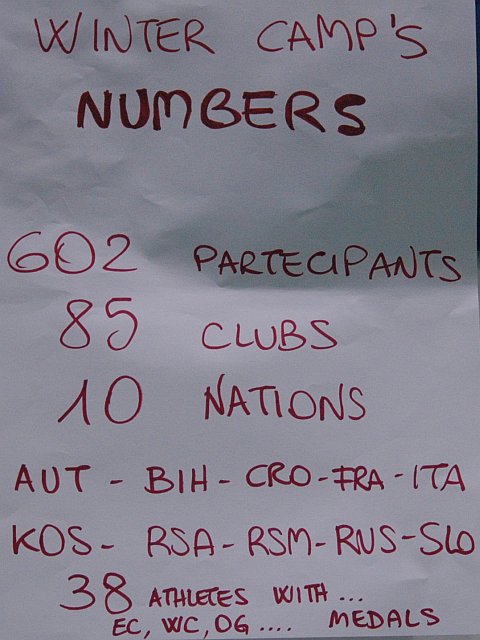 WINTER CAMP'S
NUMBERS
602 PARTECIPANTS
85 CLUBS
10 NATIONS
AUT - BIH - CRO - FRA - ITA
KOS - RSA - RSM - RUS - SLO
38 ATHLETES WITH ...
EC, WC, OG .... MEDALS